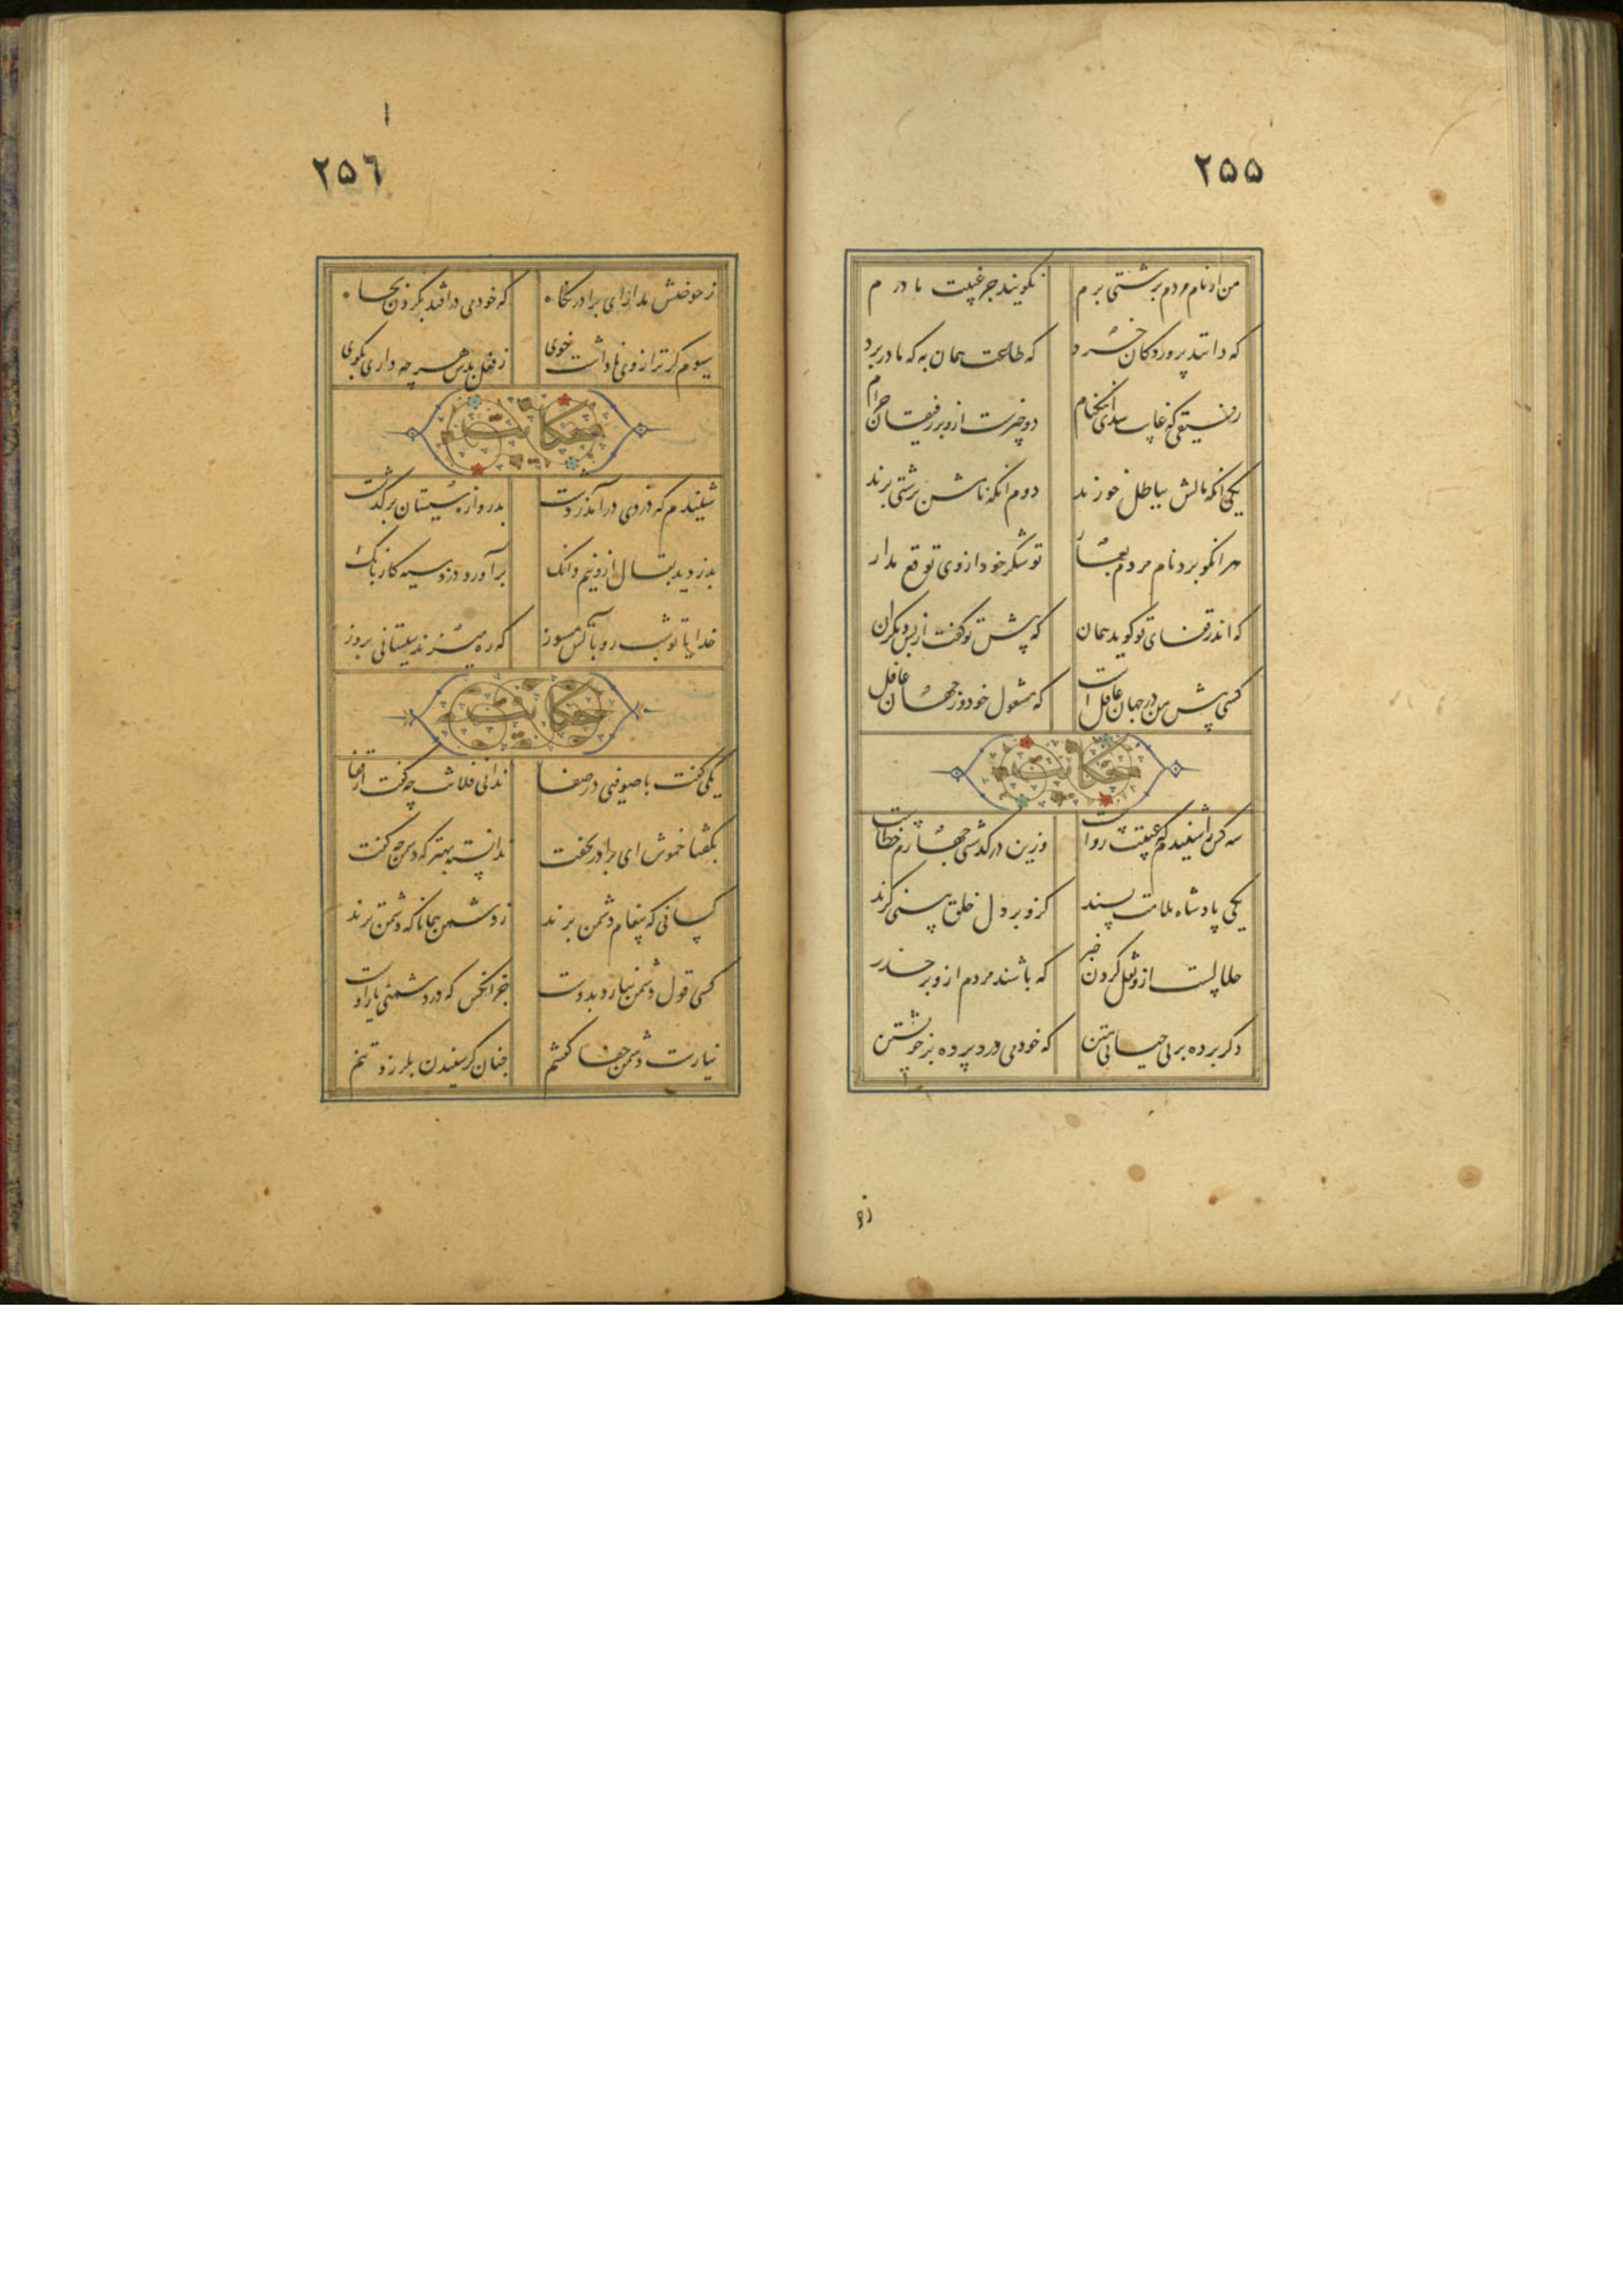 ٢٥٥
من ار نام مردم بزشتی برم نگویند جز غیبت مادرم
که دانند پروردگان خرد که طاعت همان به که مادر برد
رفیقی که غایب شد ای نیکنام دو چیزست ازو بر رفیقان حرام
یکی انکه مالش بباطل خورند دوم انکه نامش بزشتی برند
هر انکو برد نام مردم بعار تو شکر خود از وی توقع مدار
که اندر قفای تو گوید همان که پیش تو گفت از پس دیگران
کسی پیش من در جهان عاقل است که مشغول خود وز جهان غافل
حکایت
سه کس را شنیدم که غیبت رواست وزین درگذشتی چهارم خطاست
یکی پادشاه ملامت پسند کزو بر دل خلق بینی گزند
حلالست ازو نقل کردن خبر که باشند مردم ازو بر حذر
دگر پرده بر بی حیائی متن که خود می درد پرده بر خویشتن
زح
٢٥٦
ز حوضش مدار ای برادر نگاه که خود می درافتد بگردن بچاه
سیوم کژ ترازوی ناراست خوی ز فعل بدش هر چه داری بگوی
حکایت
شنیدم که دزدی درآمد ز دشت بدروازه سیستان برگذشت
بدزدید بقال ازو نیم دانگ برآورد دزد سیه کار بانگ
خدایا تو شب رو بآتش مسوز که ره میزند سیستانی بروز
حکایت
یکی گفت با صوفی در صفا ندانی فلانت چه گفت از قفا
بگفتا خموش ای برادر بخفت ندانسته بهتر که دشمن چه گفت
کسانی که پیغام دشمن برند ز دشمن همانا که دشمن ترند
کسی قول دشمن نیارد بدوست جز انکس که در دشمنی یار اوست
نیارست دشمن جفا گفتنم چنان کز شنیدن بلرزد تنم